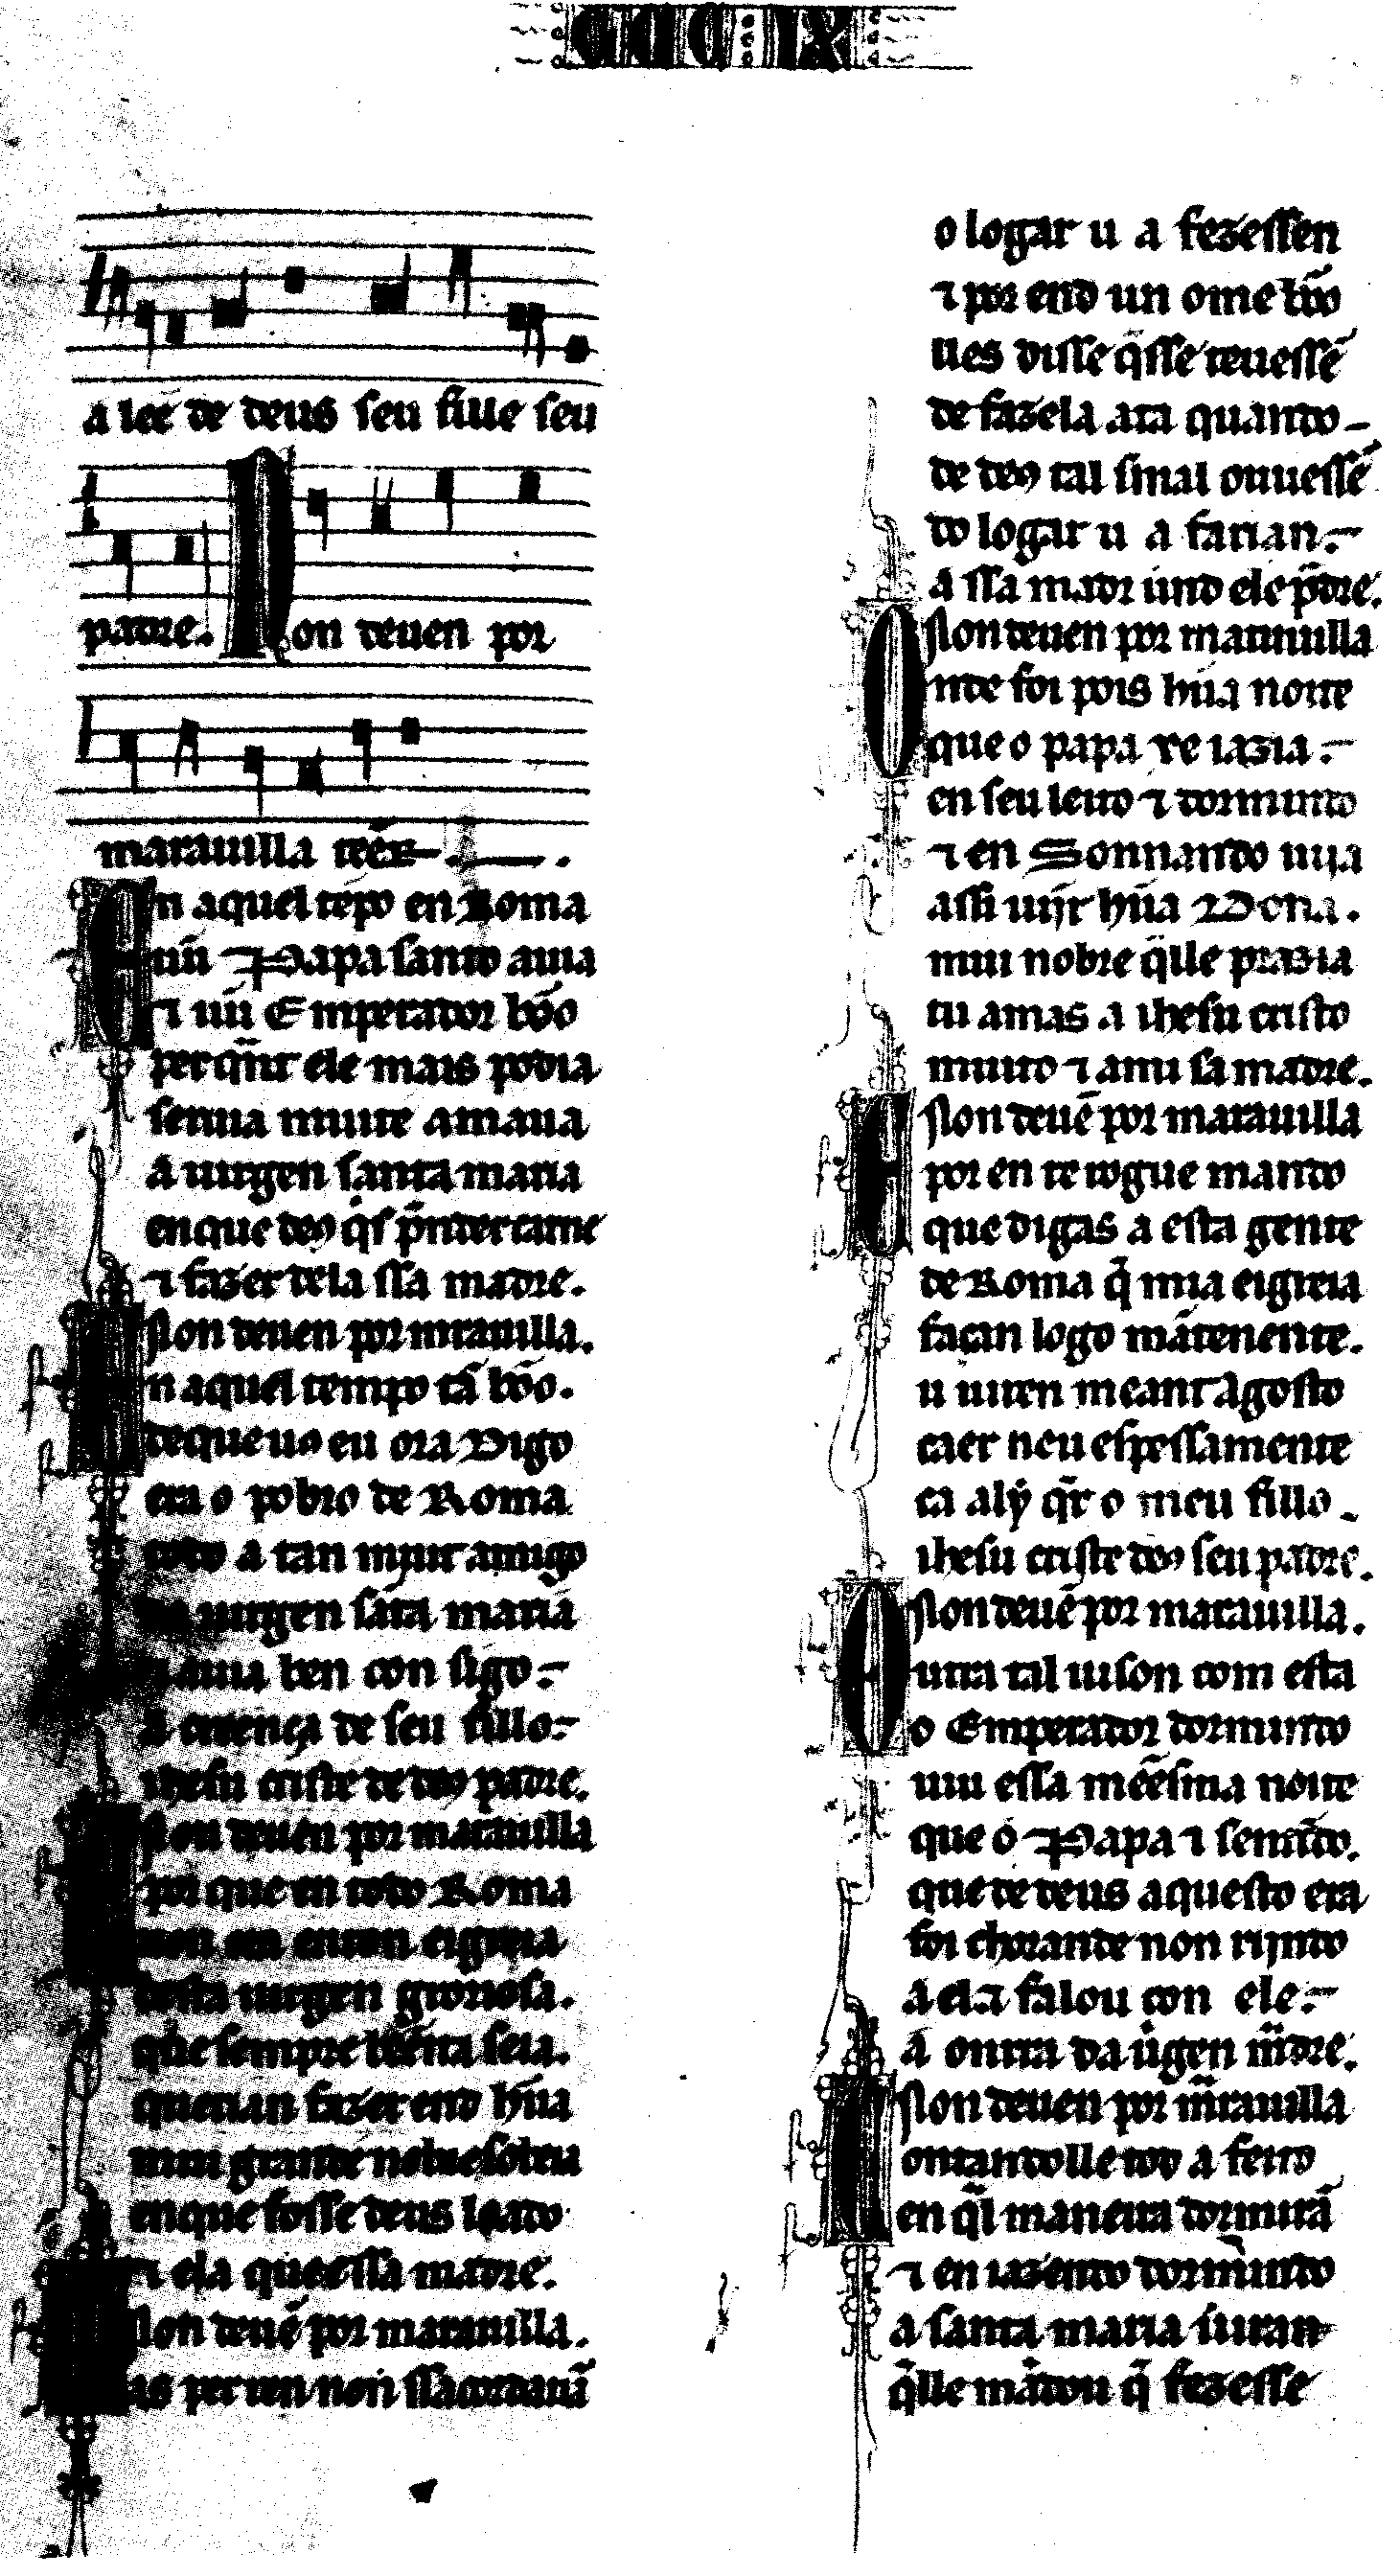 CCC IX
a lee de deus seu fille seu
padre. Non deuen por
marauilla tẽer
En aquel tẽpo en Roma
un Papa santo auia
⁊ uũ Emperador bõo
per q̃nt ele mais podia
seruia muite amaua
a uirgen santa maria
en que deꝯ q̃s p̃nder carne
⁊ fazer dela ssa madre.
Non deuen por mrauilla.
n aquel tempo tã bõo.
de que uꝯ eu ora Digo
era o pobro de Roma
todo a tan mjui amigo
da uirgen sãta maria
auia ben con sigo
a creença de seu fillo
ihesu criste de deꝯ padre.
Non deuen por marauilla
por que en todo Roma
non era enton eigreia
desta uirgen groriosa.
que sempre bẽeita seia.
querian fazer end hũa
mui grande nobre sobeia
en que fosse deus loado
⁊ ela que e ssa madre.
Non deuẽ por marauilla.
as per ren non ss acordauã
o logar u a fezessen
⁊ por end un ome bõo
lles disse q̃sse teuessẽ
de fazela ata quando
de deꝯ tal sinal ouuessẽ
do logar u a farian
a ssa mador uindo ele p̃dre.
Non deuen por marauilla
Onde foi pois hũa noite
que o papa se iazia
en seu leito ⁊ dormindo
⁊ en Sonnando uija
assi uijr hũa Dona.
mui nobre q̃lle prazia
tu amas a ihesu cristo
muito ⁊ ami sa madre.
Non deuẽ por marauilla
E por en te rogue mando
que digas a esta gente
de Roma q̃ mia eigreia
façan logo mãtenente.
u uiren meant agosto
caer neu espessamente
ca alỹ q̃r o meu fillo
ihesu criste deꝯ seu padre.
Non deuẽ por marauilla.
Outra tal uison com esta
o Emperador dormindo
uiu essa mẽesma noite
que o Papa ⁊ sentĩdo.
que de deus aquesto era
foi chorande non rijndo
a ela ⁊ falou con ele
a onrra da uirgen m̃dre.
Non deuen por m̃rauilla
ontandolle todo a feito
en q̃l maneira dormirã
⁊ en iazendo dormindo
a santa maria uiran
q̃lle mãdou q̃ fezesse